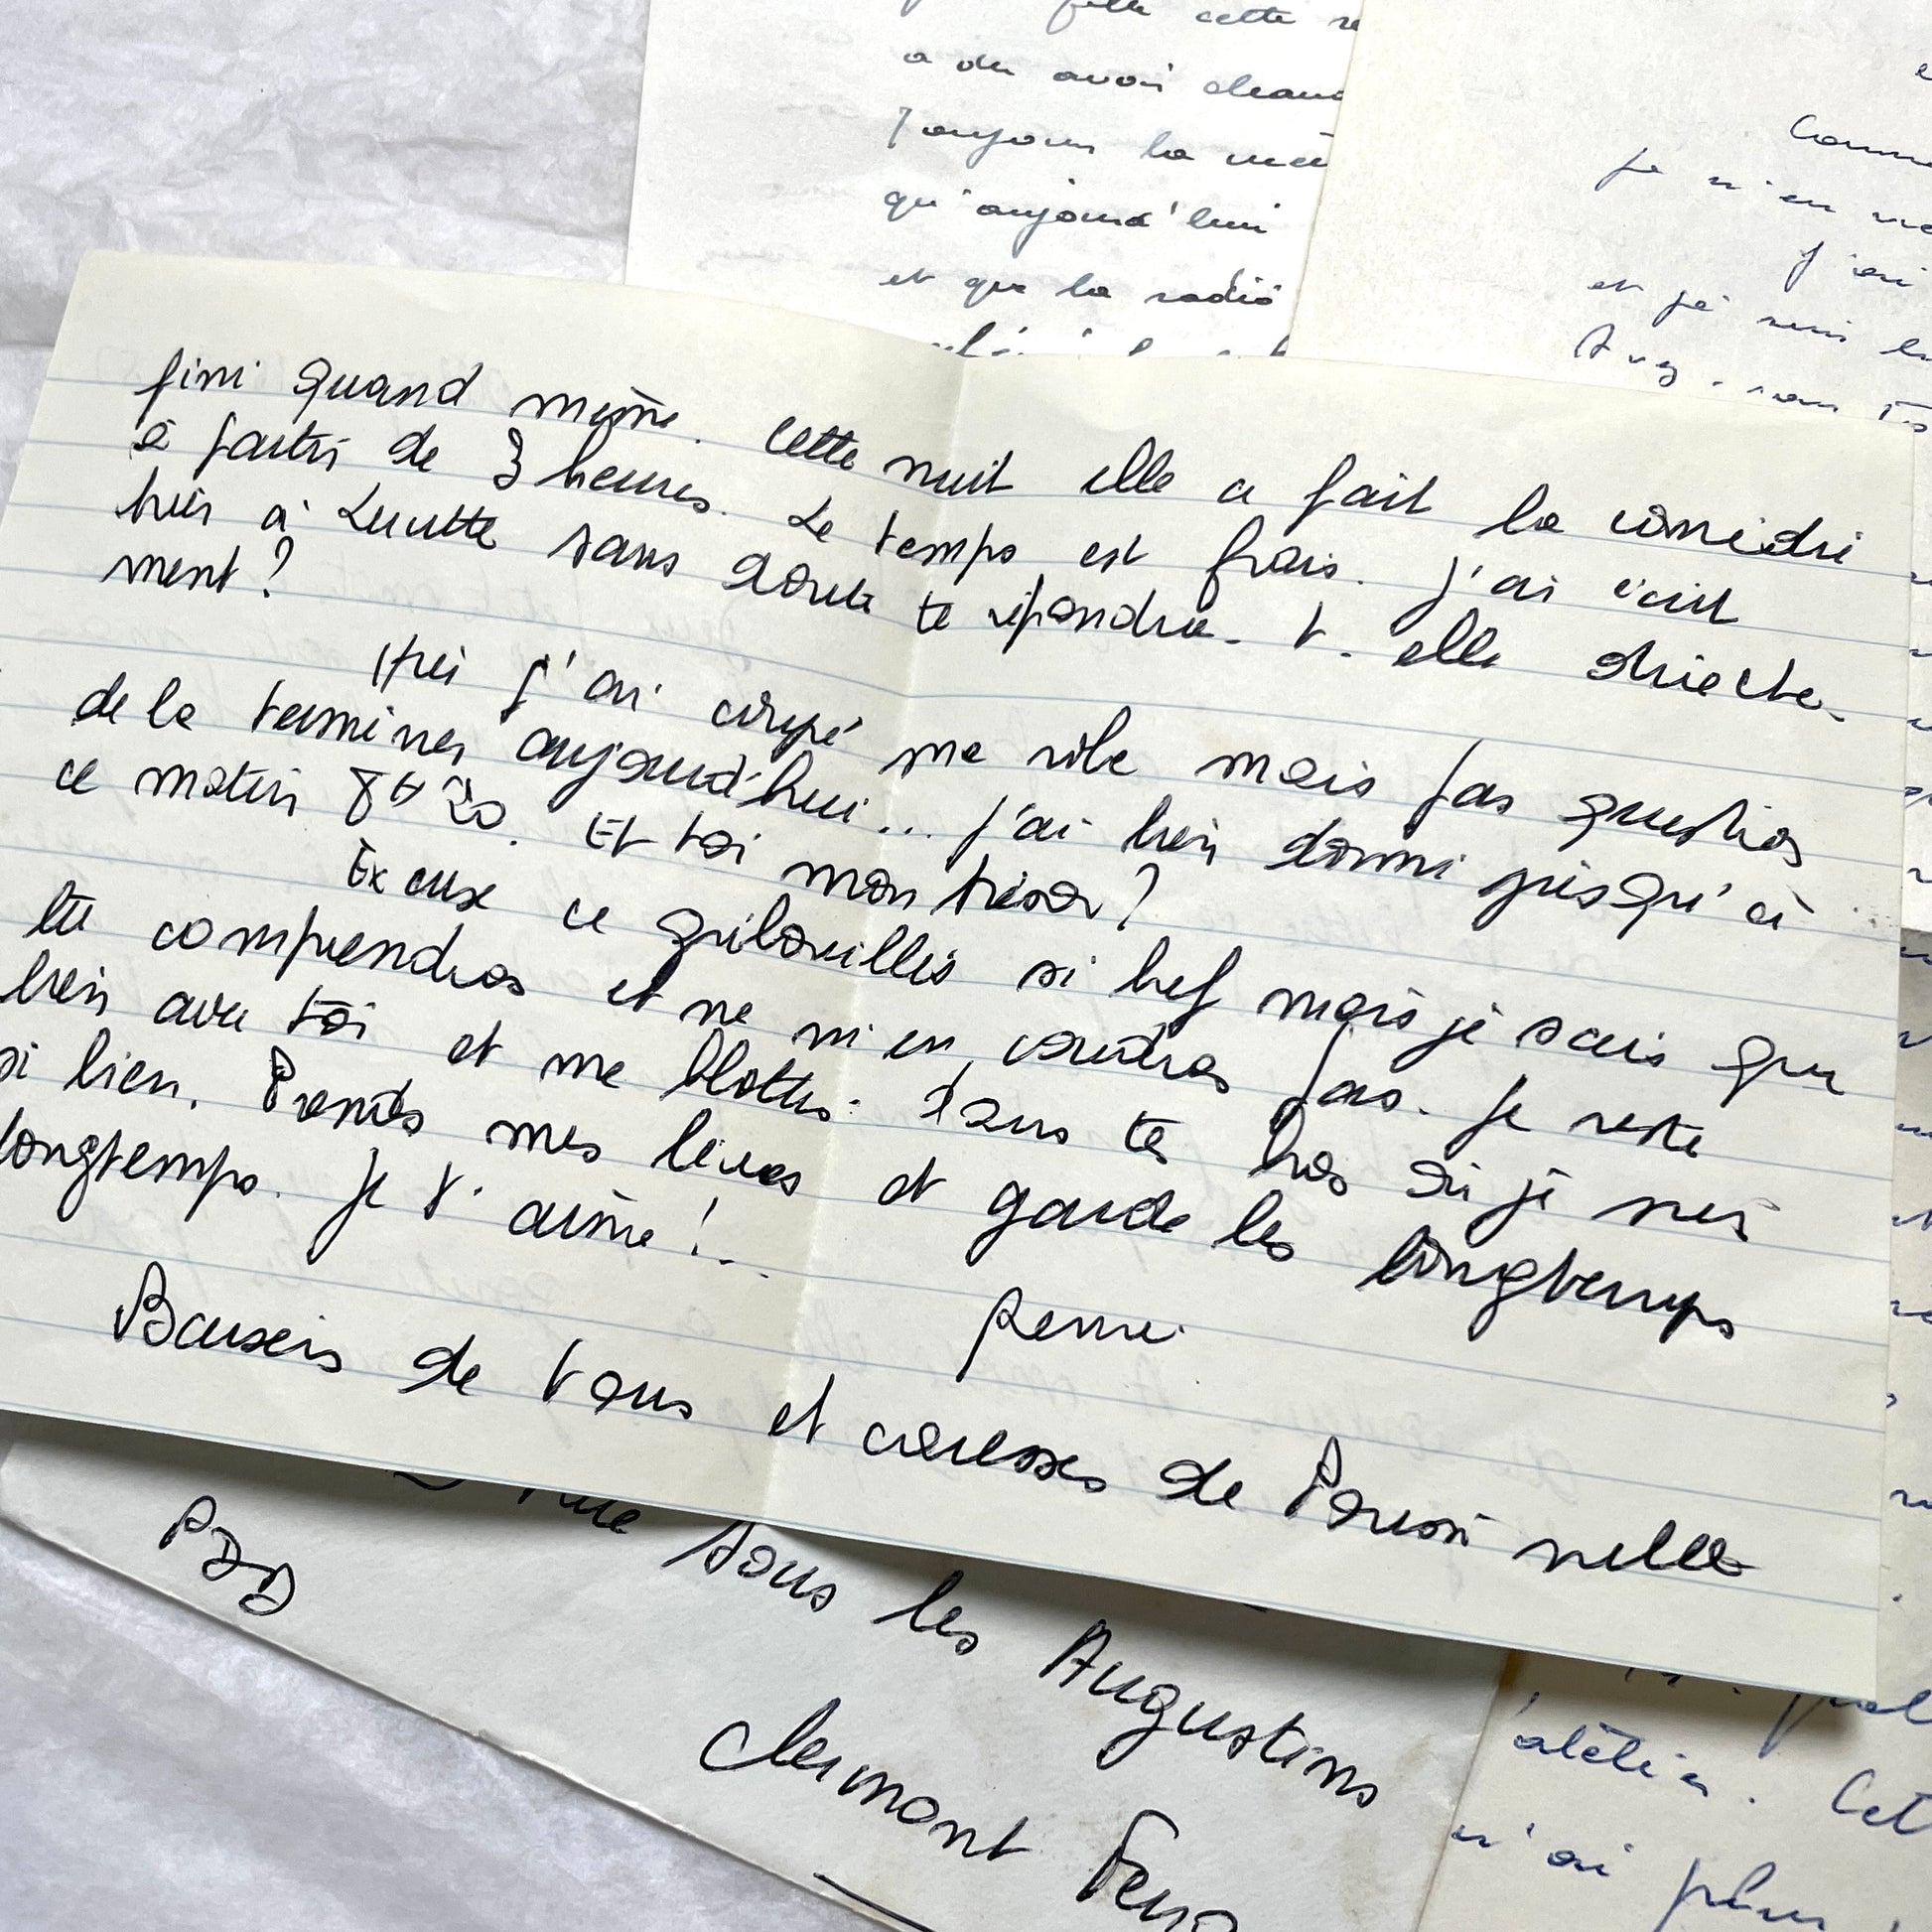 fille cette
a du avoir
Toujours la
qu'aujourd'hui
et que la radio
Je n'en
J'ai
et je suis
fini quand même. Cette nuit elle a fait la comédie
à partir de 3 heures. Le temps est frais. J'ai écrit
hier à Lucette sans doute te répondra-t-elle directe-
ment ?
Hier j'ai coupé ma robe mais pas question
de la terminer aujourd'hui... J'ai bien dormi jusqu'à
ce matin 8H20. Et toi mon trésor ?
Excuse ce gribouillis si bref mais je sais que
tu comprendras et ne m'en voudras pas. Je reste
bien avec toi et me blottis dans tes bras où je suis
si bien. Prends mes lèvres et garde les longtemps
longtemps. Je t'aime !...
Baisers de tous et caresses de Poussinette
rue sous les Augustins
PDD
Clermont Ferra
atelier. Cet
n'ai plus